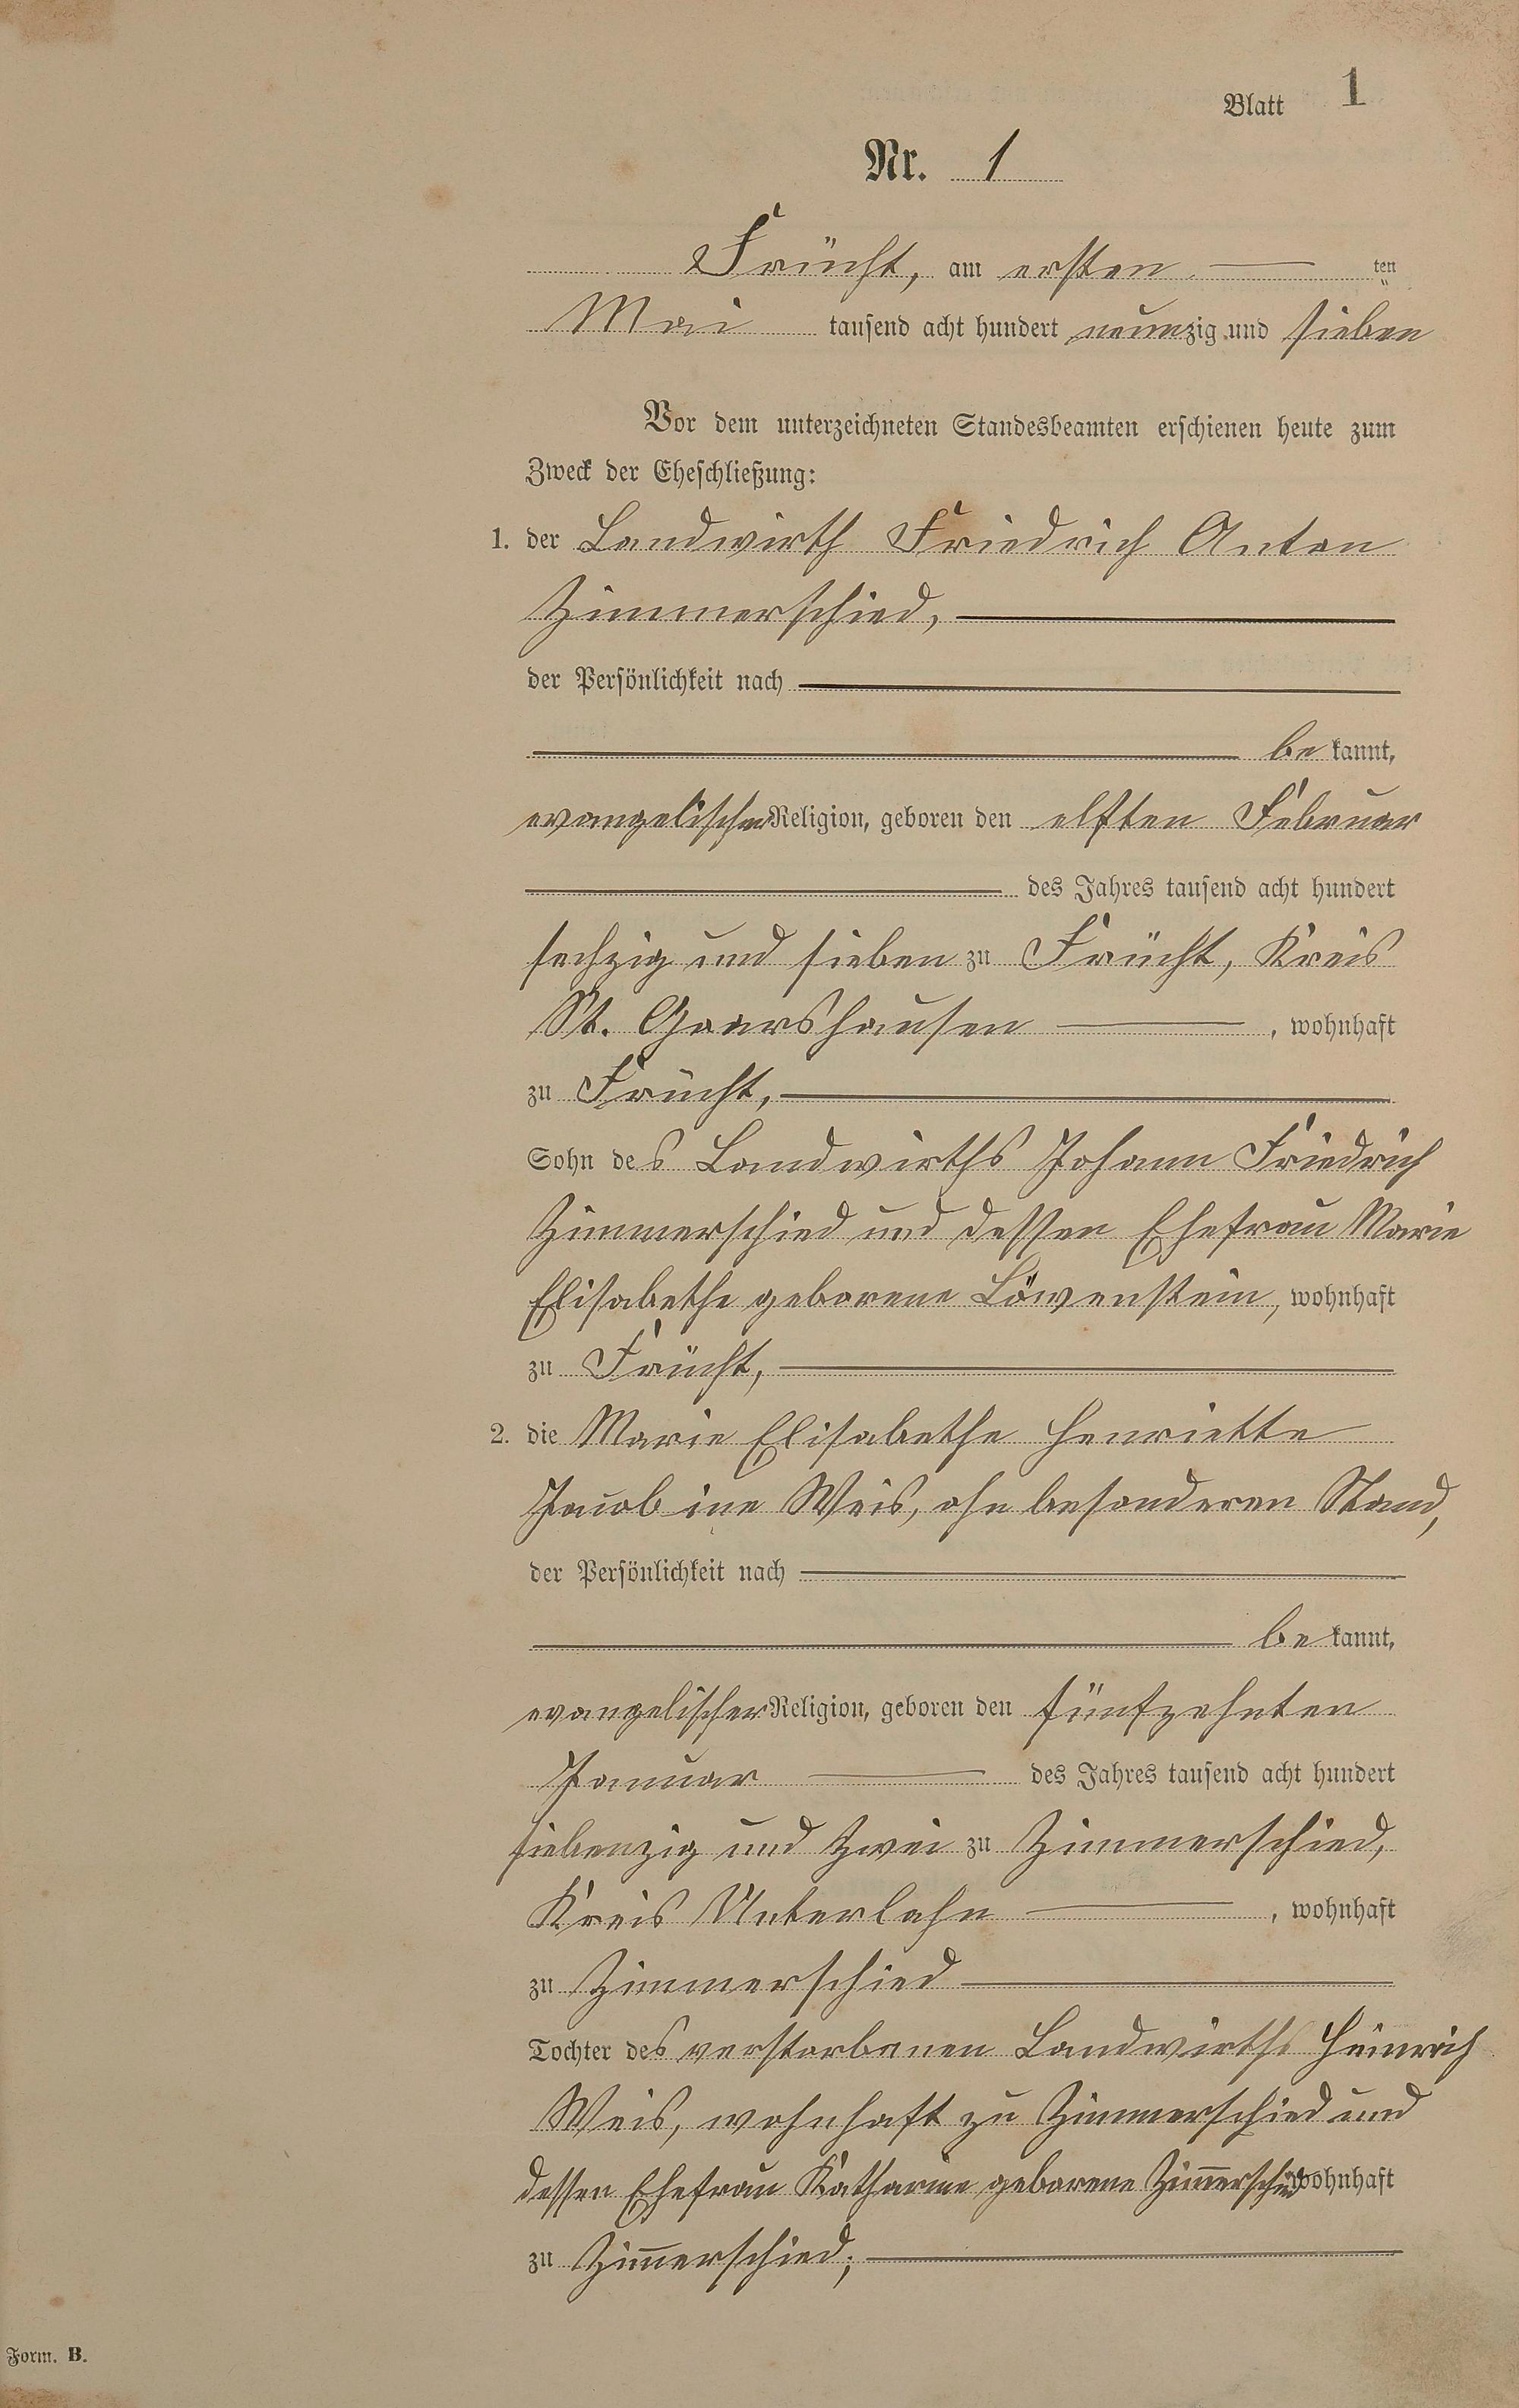 Blatt 1
Nr. 1
Frücht, am ersten ten
Mai tausend acht hundert neunzig und sieben
Vor dem unterzeichneten Standesbeamten erschienen heute zum
Zweck der Eheschließung:
1. der Landwirth Friedrich Anton
Zimmerschied,
der Persönlichkeit nach
bekannt,
evangelischer Religion, geboren den elften Februar
des Jahres tausend acht hundert
sechzig und sieben zu Frücht, Kreis
St. Goarshausen, wohnhaft
zu Frücht,
Sohn des Landwirths Johann Friedrich
Zimmerschied und dessen Ehefrau Marie
Elisabethe geborene Löwenstein, wohnhaft
zu Frücht,
2. die Marie Elisabethe Henriette
Jacobine Weis, ohne besonderen Stand,
der Persönlichkeit nach
bekannt,
evangelischer Religion, geboren den fünfzehnten
Januar des Jahres tausend acht hundert
siebenzig und zwei zu Zimmerschied,
Kreis Unterlahn, wohnhaft
zu Zimmerschied
Tochter des verstorbenen Landwirths Heinrich
Weis, wohnhaft zu Zimmerschied und
dessen Ehefrau Katharine geborene Zim̅erschied wohnhaft
zu Zim̅erschied;
Form. B.